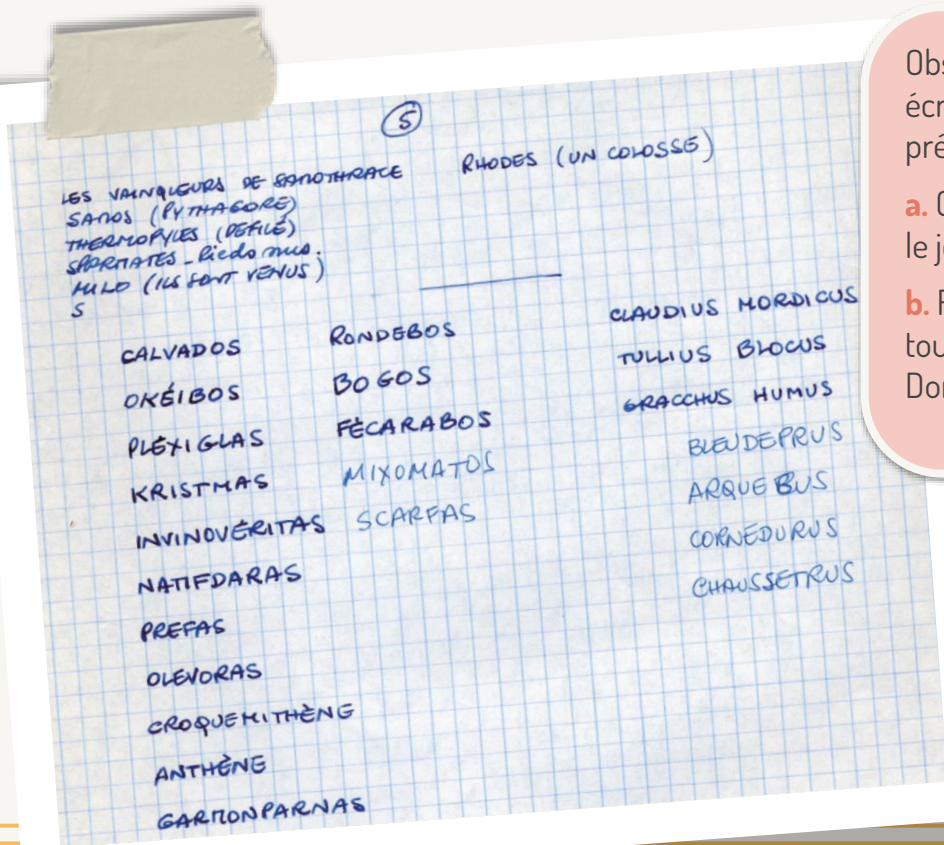 5
LES VAINQUEURS DE SAMOTHRACE
RHODES (UN COLOSSE)
SAMOS (PYTHAGORE)
THERMOPYLES (DÉFILÉ)
MILO (ILS SONT VENUS)
S
CALVADOS
OKÉIBOS
PLÉXIGLAS
KRISTMAS
INVINOVÉRITAS
NATIFDARAS
PREFAS
OLEVORAS
CROQUEMITHÈNE
ANTHÈNE
GARMONPARNAS
RONDEBOS
BOGOS
FÈCARABOS
MIXOMATOS
SCARFAS
CLAUDIUS MORDICUS
TULLIUS BLOCUS
GRACCHUS HUMUS
BLEUDEPRUS
ARQUEBUS
CORNEDURUS
CHAUSSETRUS
Obs
écr
pré
a.
le j
b.
tou
Do